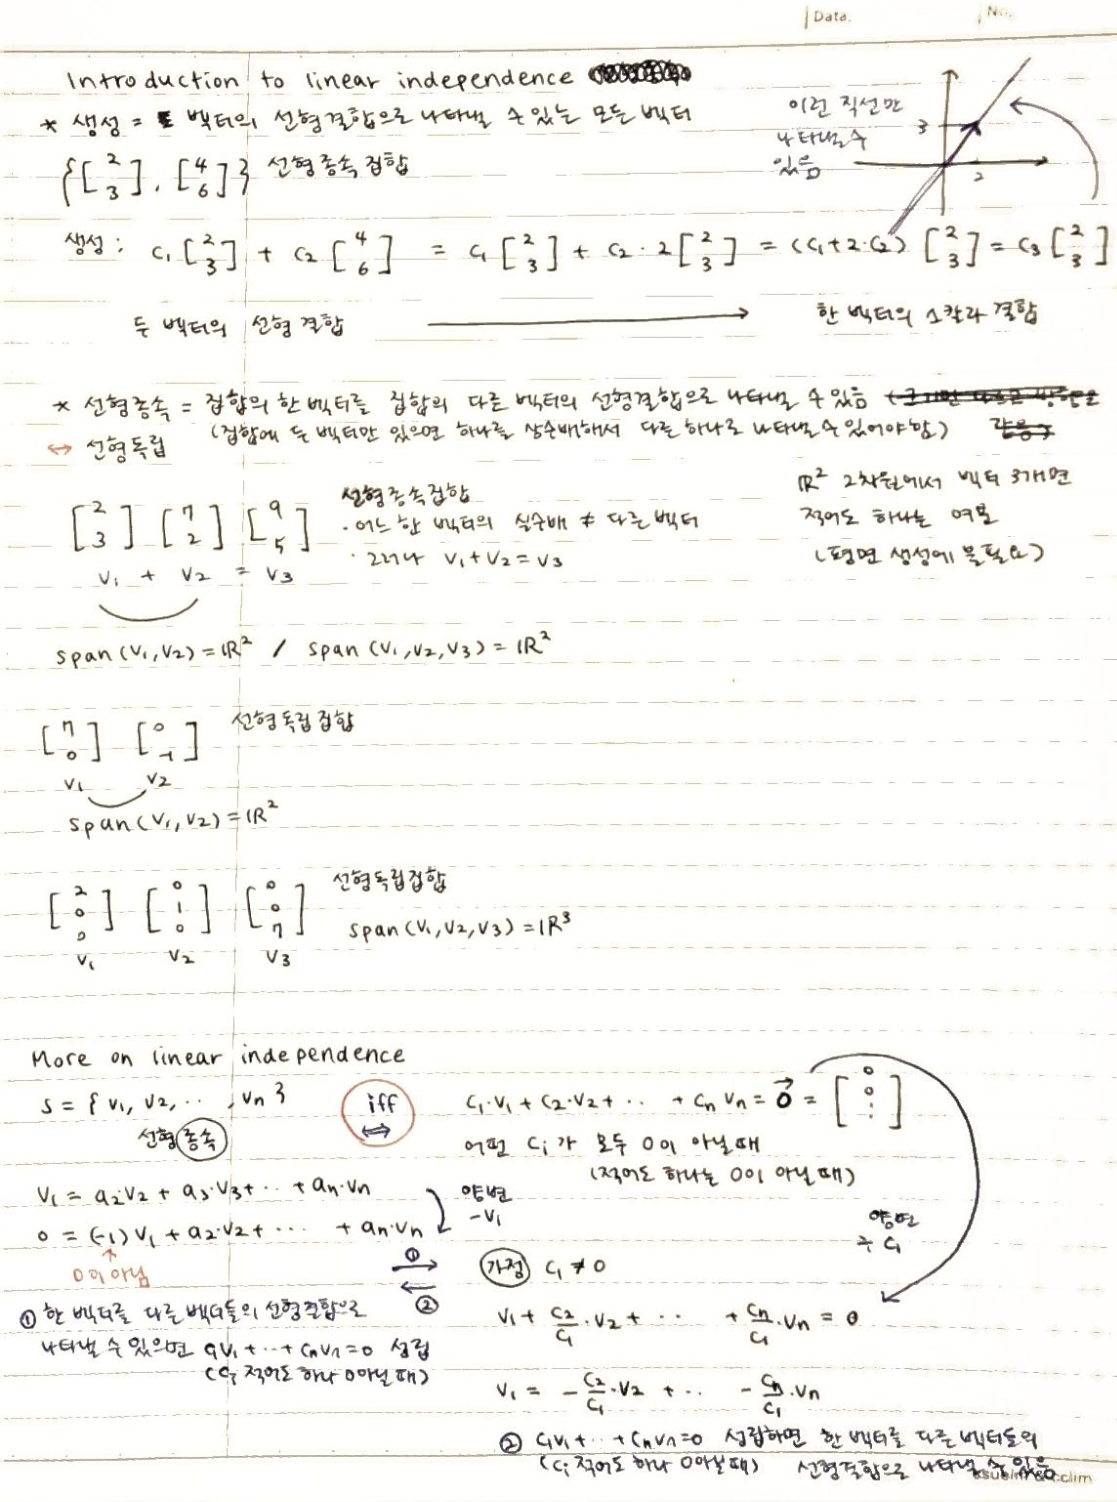 Data.
No.
Introduction to linear independence
* 생성 = 벡터의 선형결합으로 나타낼 수 있는 모든 벡터
이런 직선만
나타낼 수
있음
3
2
{[2 3], [4 6]} 선형종속집합
생성: c₁[2 3] + c₂[4 6] = c₁[2 3] + c₂·2[2 3] = (c₁+2·c₂)[2 3] = c₃[2 3]
두 벡터의 선형결합 → 한 벡터의 스칼라 결합
* 선형종속 = 집합의 한 벡터를 집합의 다른 벡터의 선형결합으로 나타낼 수 있음
↔ 선형독립 (집합에 두 벡터만 있으면 하나를 상수배해서 다른 하나로 나타낼 수 있어야함)
[2 3] [7 2] [9 5]
v₁ + v₂ = v₃
선형종속집합
· 어느 한 벡터의 실수배 ≠ 다른 벡터
· 그러나 v₁+v₂=v₃
ℝ² 2차원에서 벡터 3개면
적어도 하나는 여분
(평면 생성에 불필요)
span(v₁,v₂)=ℝ² / span(v₁,v₂,v₃)=ℝ²
[7 0] [0 -1] 선형독립집합
v₁ v₂
span(v₁,v₂)=ℝ²
[2 0 0] [0 1 0] [0 0 7] 선형독립집합
v₁ v₂ v₃
span(v₁,v₂,v₃)=ℝ³
More on linear independence
S = {v₁, v₂, ··· , vn}
선형종속
iff
⇔
c₁·v₁ + c₂·v₂ + ·· + cn vn = 0⃗ = [0 0 ⋮]
어떤 ci가 모두 0이 아닐 때
(적어도 하나는 0이 아닐 때)
v₁ = a₂·v₂ + a₃·v₃ + ·· + an·vn
0 = (-1)v₁ + a₂·v₂ + ··· + an·vn
0이 아님
양변
-v₁
① →
← ②
양변
÷ c₁
가정 c₁ ≠ 0
v₁ + c₂/c₁·v₂ + ··· + cn/c₁·vn = 0
v₁ = -c₂/c₁·v₂ + ·· - cn/c₁·vn
① 한 벡터를 다른 벡터들의 선형결합으로
나타낼 수 있으면 c₁v₁+··+cnvn=0 성립
(ci 적어도 하나 0 아닐 때)
② c₁v₁+··+cnvn=0 성립하면 한 벡터를 다른 벡터들의
(ci 적어도 하나 0 아닐 때) 선형결합으로 나타낼 수 있음